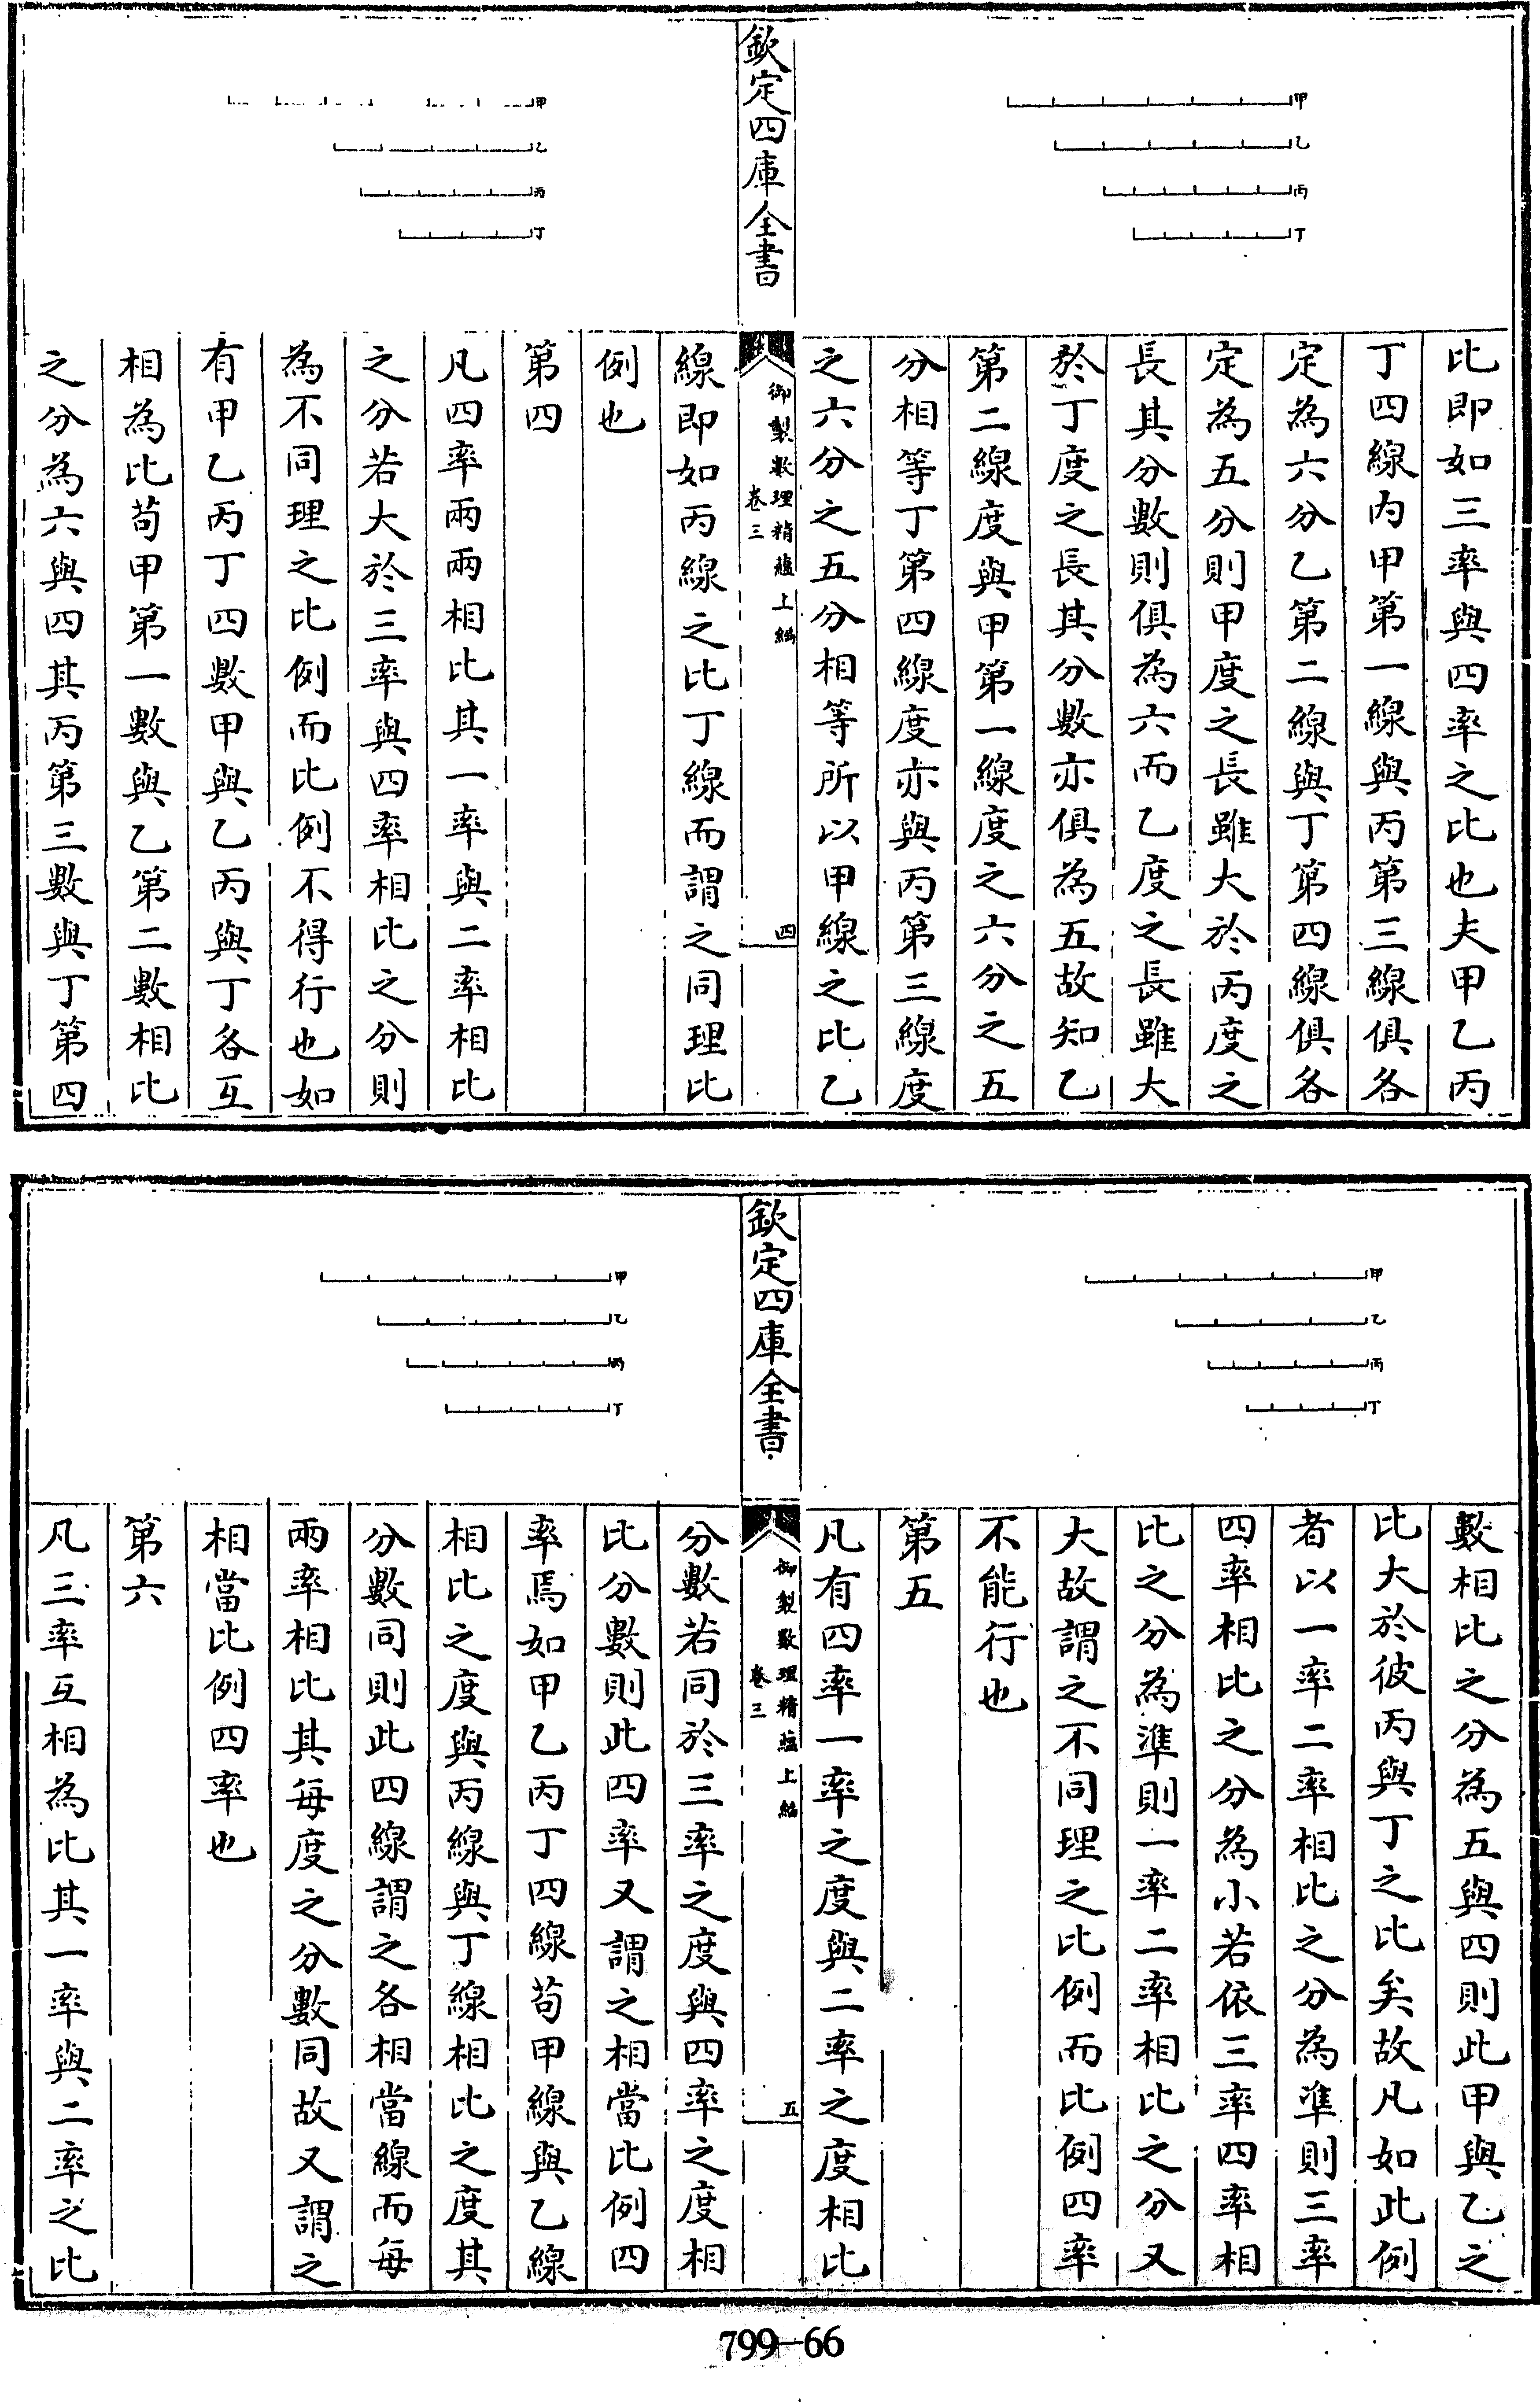 甲
乙
丙
丁
比即如三率與四率之比也夫甲乙丙
丁四線内甲第一線與丙第三線俱各
定為六分乙第二線與丁第四線俱各
定為五分則甲度之長雖大於丙度之
長其分數則俱為六而乙度之長雖大
於丁度之長其分數亦俱為五故知乙
第二線度與甲第一線度之六分之五
分相等丁第四線度亦與丙第三線度
之六分之五分相等所以甲線之比乙
欽定四庫全書
御製數理精蘊上編
卷三
四
甲
乙
丙
丁
線即如丙線之比丁線而謂之同理比
例也
第四
凡四率兩兩相比其一率與二率相比
之分若大於三率與四率相比之分則
為不同理之比例而比例不得行也如
有甲乙丙丁四數甲與乙丙與丁各互
相為比苟甲第一數與乙第二數相比
之分為六與四其丙第三數與丁第四
甲
乙
丙
丁
數相比之分為五與四則此甲與乙之
比大於彼丙與丁之比矣故凡如此例
者以一率二率相比之分為準則三率
四率相比之分為小若依三率四率相
比之分為準則一率二率相比之分又
大故謂之不同理之比例而比例四率
不能行也
第五
凡有四率一率之度與二率之度相比
欽定四庫全書
御製數理精蘊上編
卷三
五
甲
乙
丙
丁
分數若同於三率之度與四率之度相
比分數則此四率又謂之相當比例四
率焉如甲乙丙丁四線苟甲線與乙線
相比之度與丙線與丁線相比之度其
分數同則此四線謂之各相當線而每
兩率相比其每度之分數同故又謂之
相當比例四率也
第六
凡三率互相為比其一率與二率之比
799-66